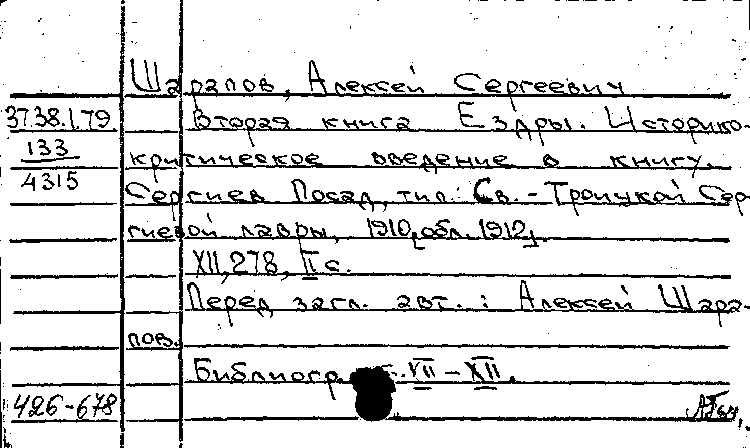 Шарапов, Алексей Сергеевич
37.38.1.79
Вторая книга Ездры. Историко-
133
критическое введение в книгу.
4315
Сергиев Посад, тип. Св.-Троицкой Сер
гиевой лавры, 1910, [обл. 1912].
XII, 278, II с.
Перед загл. авт.: Алексей Шара-
пов.
Библиогр. с. VII-XII.
426-678